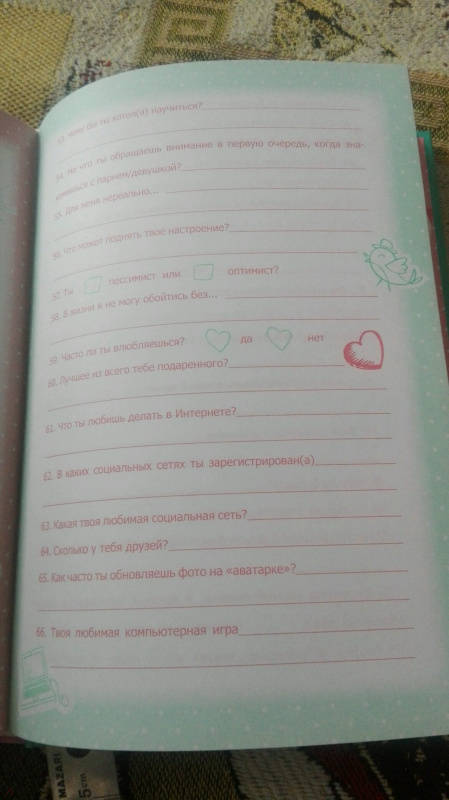 53. Чему бы ты хотел(а) научиться?
54. На что ты обращаешь внимание в первую очередь, когда зна-
комишься с парнем/девушкой?
55. Для меня нереально...
56. Что может поднять твое настроение?
57. Ты пессимист или оптимист?
58. В жизни я не могу обойтись без...
59. Часто ли ты влюбляешься? да нет
60. Лучшее из всего тебе подаренного?
61. Что ты любишь делать в Интернете?
62. В каких социальных сетях ты зарегистрирован(а)
63. Какая твоя любимая социальная сеть?
64. Сколько у тебя друзей?
65. Как часто ты обновляешь фото на «аватарке»?
66. Твоя любимая компьютерная игра
MAZARI
5cm